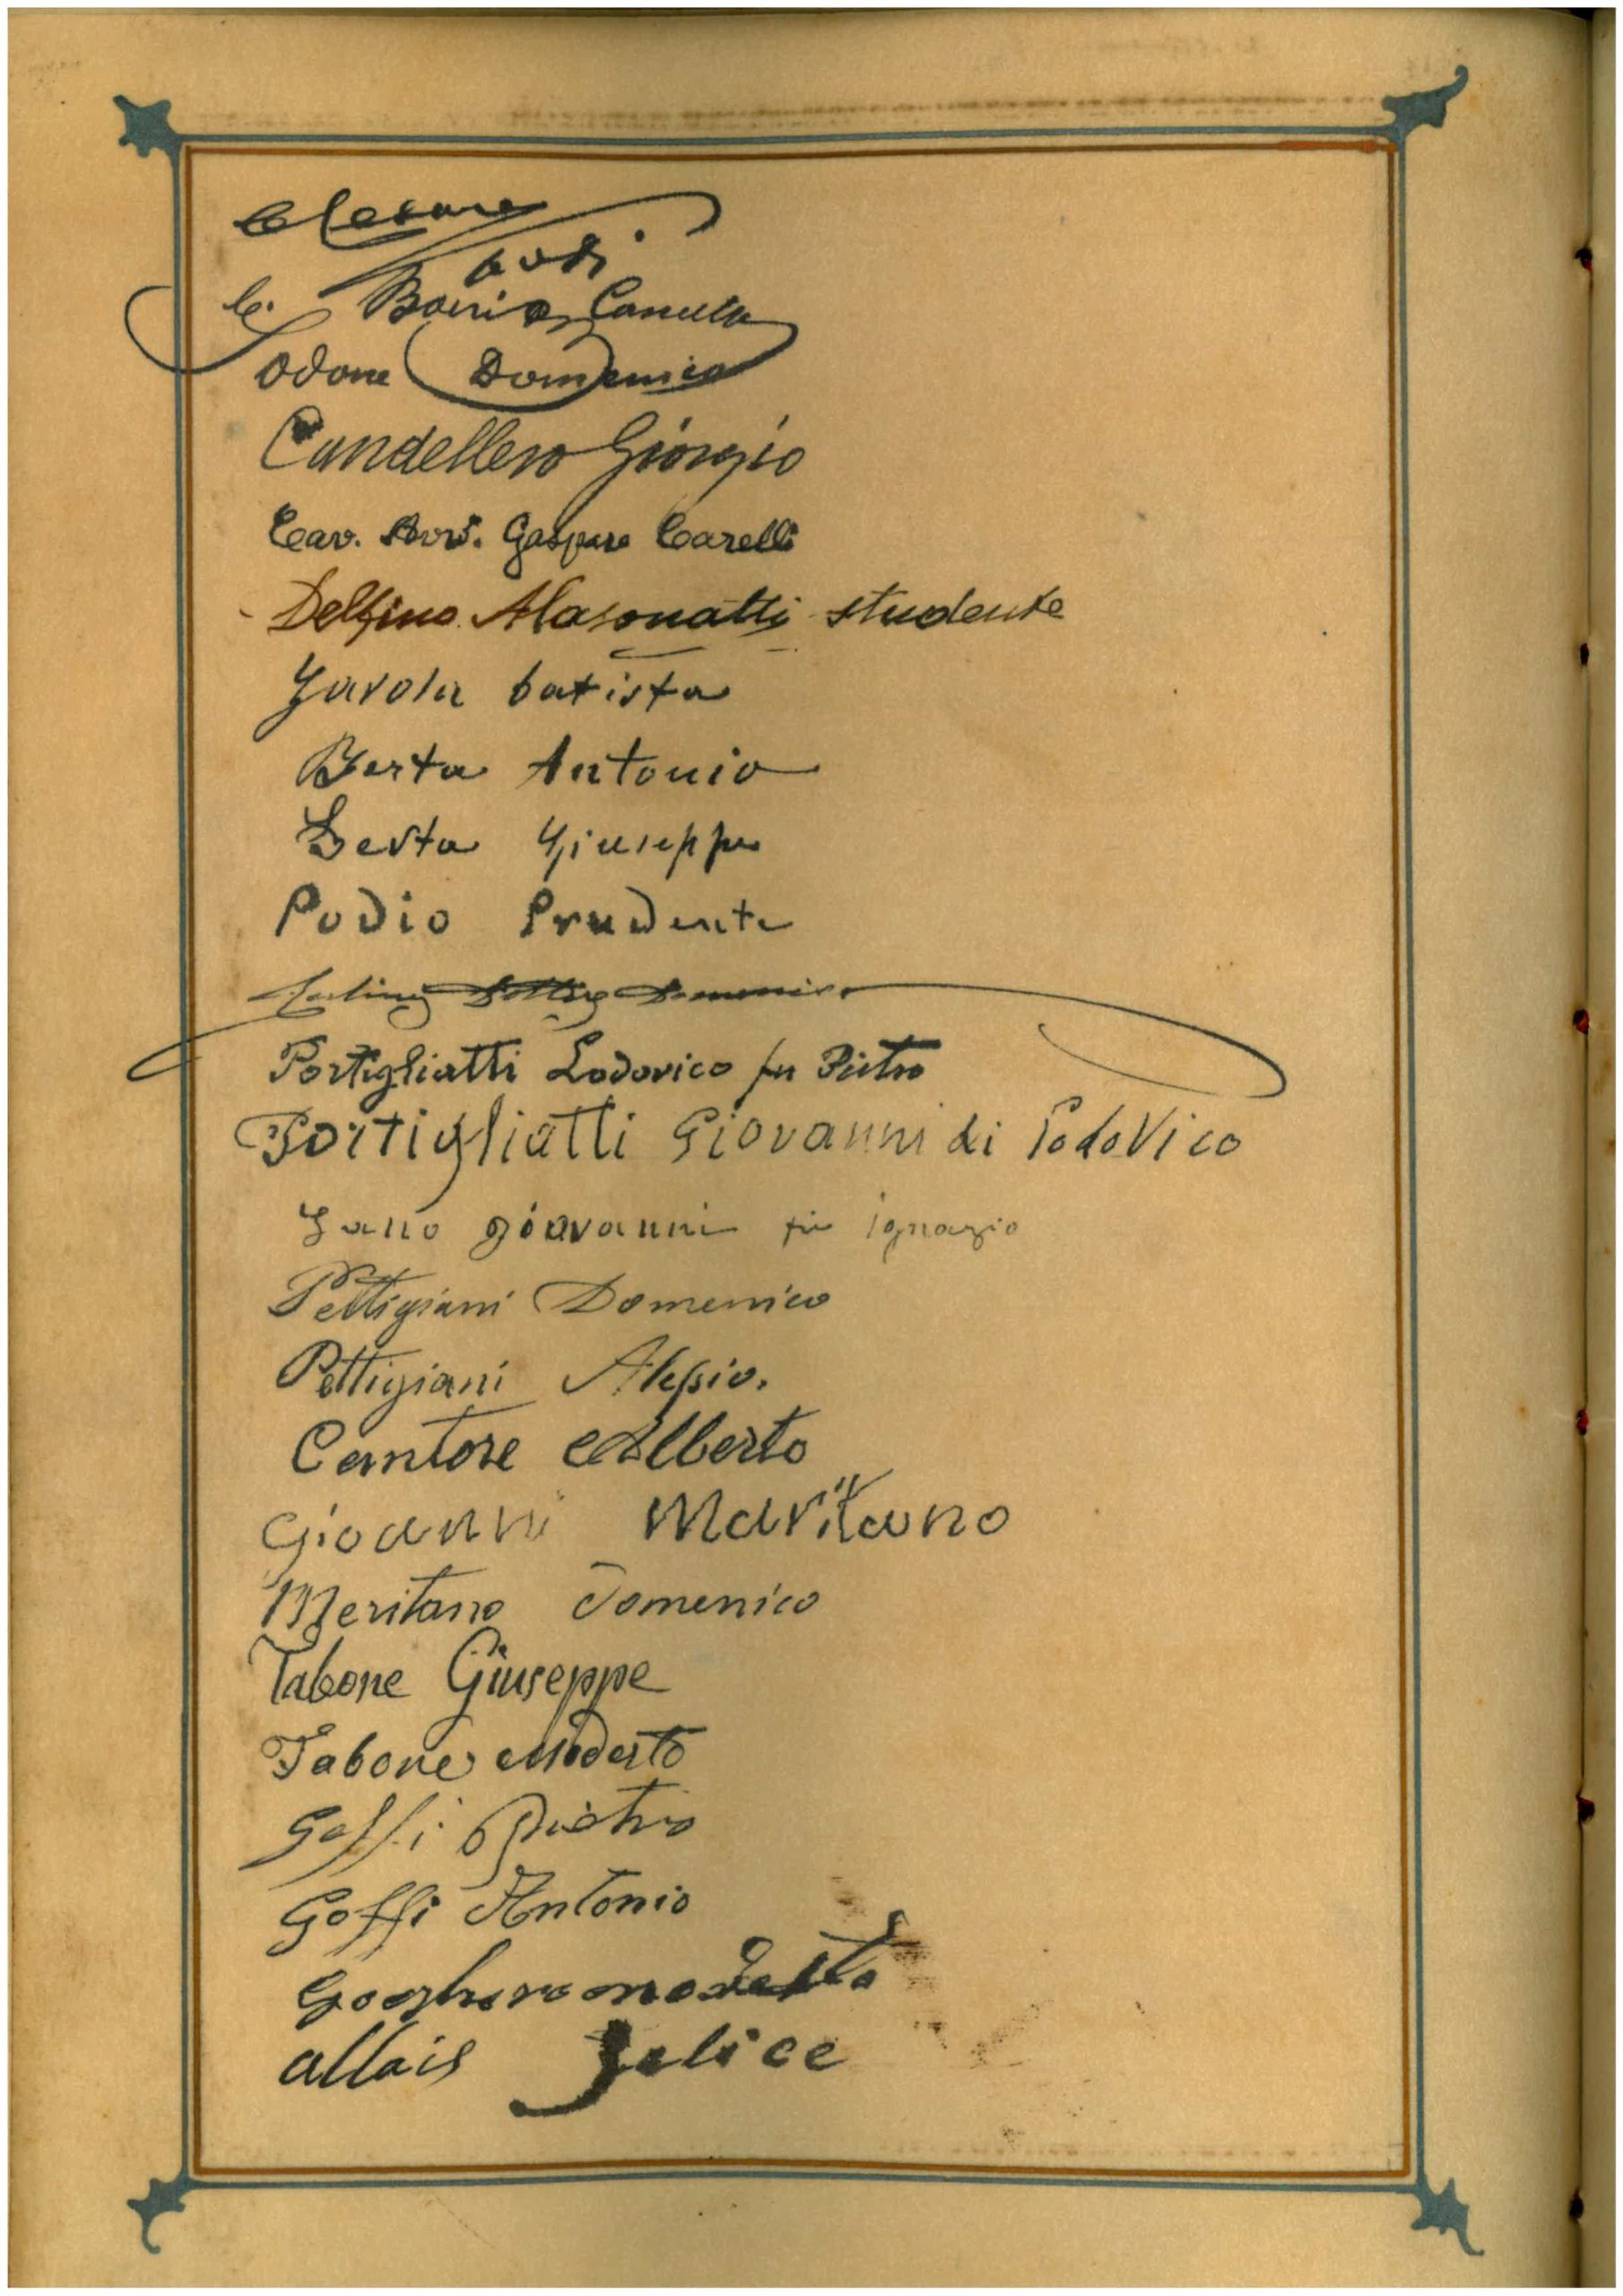 Cesare
C. Camilla
Odone Domenico
Candellero Giorgio
Cav. Avv. Gaspare Carelli
Delfino Alasonatti studente
batista
Berta Antonio
Berta Giuseppe
Podio Prudente
Domenico
Portigliatti Lodovico fu Pietro
Portigliatti Giovanni di LodoVico
giovanni fu ignazio
Pettigiani Domenico
Pettigiani Alessio.
Cantore Alberto
Gioanni Maritano
Meritano Domenico
Tabone Giuseppe
Tabone Modesto
Goffi Pietro
Goffi Antonio
modesto
allais Felice